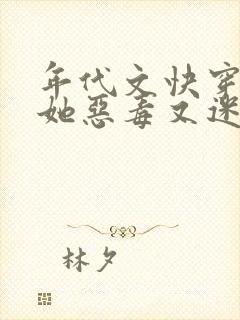 年代文快穿
她惡毒又迷
林夕